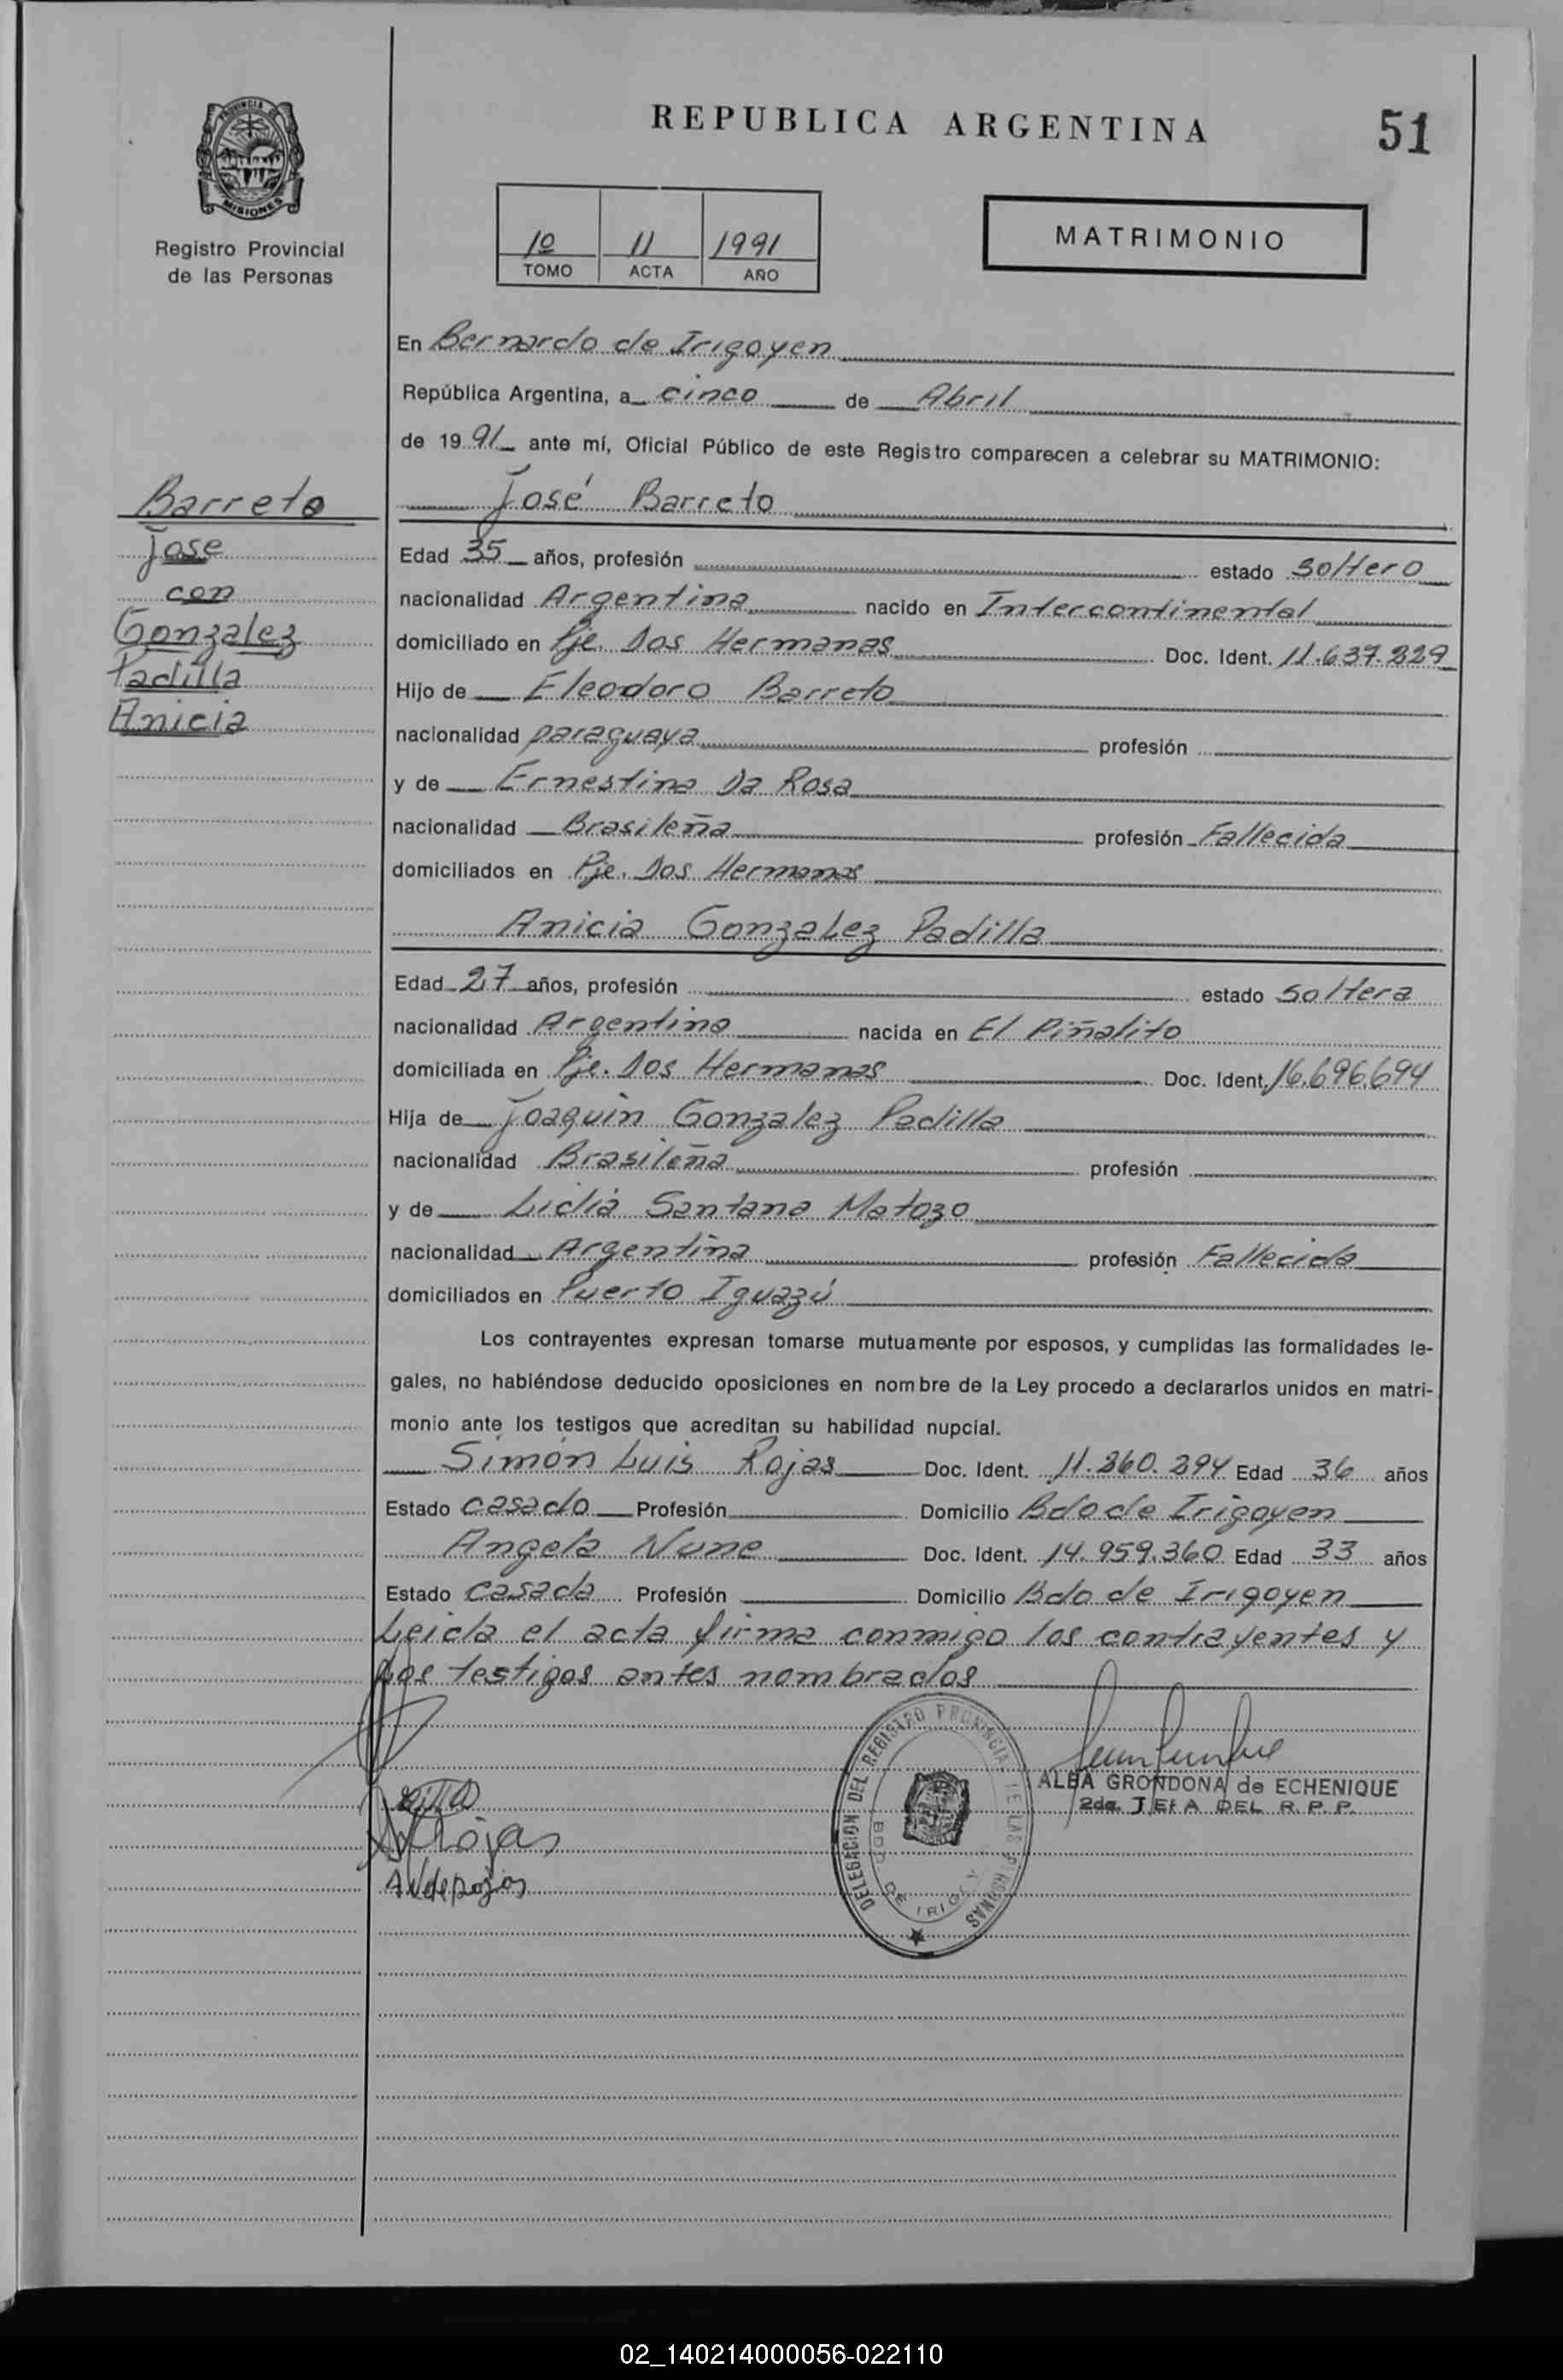 PROVINCIA DE
MISIONES
Registro Provincial
de las Personas
REPUBLICA ARGENTINA
51
1º 11 1991
TOMO ACTA AÑO
MATRIMONIO
En Bernardo de Irigoyen
República Argentina, a cinco de Abril
de 1991 ante mí, Oficial Público de este Registro comparecen a celebrar su MATRIMONIO:
Barreto
Jose
con
Gonzalez
Padilla
Anicia
José Barreto
Edad 35 años, profesión estado soltero
nacionalidad Argentina nacido en Intercontinental
domiciliado en Pje. Dos Hermanas Doc. Ident. 11.637.229
Hijo de Eleodoro Barreto
nacionalidad paraguaya profesión
y de Ernestina Da Rosa
nacionalidad Brasileña profesión Fallecida
domiciliados en Pje. Dos Hermanas
Anicia Gonzalez Padilla
Edad 27 años, profesión estado soltera
nacionalidad Argentina nacida en El Piñalito
domiciliada en Pje. Dos Hermanas Doc. Ident. 16.696.694
Hija de Joaquin Gonzalez Padilla
nacionalidad Brasileña profesión
y de Lidia Santana Matozo
nacionalidad Argentina profesión Fallecida
domiciliados en Puerto Iguazú
Los contrayentes expresan tomarse mutuamente por esposos, y cumplidas las formalidades le-
gales, no habiéndose deducido oposiciones en nombre de la Ley procedo a declararlos unidos en matri-
monio ante los testigos que acreditan su habilidad nupcial.
Simón Luis Rojas Doc. Ident. 11.260.294 Edad 36 años
Estado casado Profesión Domicilio Bdo de Irigoyen
Angela Nune Doc. Ident. 14.959.360 Edad 33 años
Estado casada Profesión Domicilio Bdo de Irigoyen
Leida el acta firma conmigo los contrayentes y
los testigos antes nombrados
DELEGACION DEL REGISTRO PROVINCIAL DE LAS PERSONAS
BDO DE IRIGOY
ALBA GRONDONA de ECHENIQUE
2da. JEFA DEL R. P. P.
Rojas
AN de Rojas
02_140214000056-022110